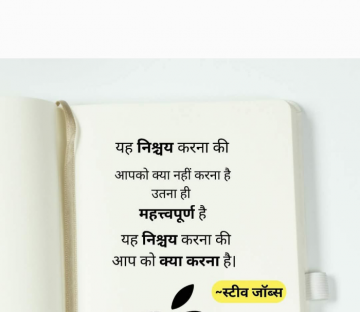 यह निश्चय करना की
आपको क्या नहीं करना है
उतना ही
महत्त्वपूर्ण है
यह निश्चय करना की
आप को क्या करना है।
~स्टीव जॉब्स